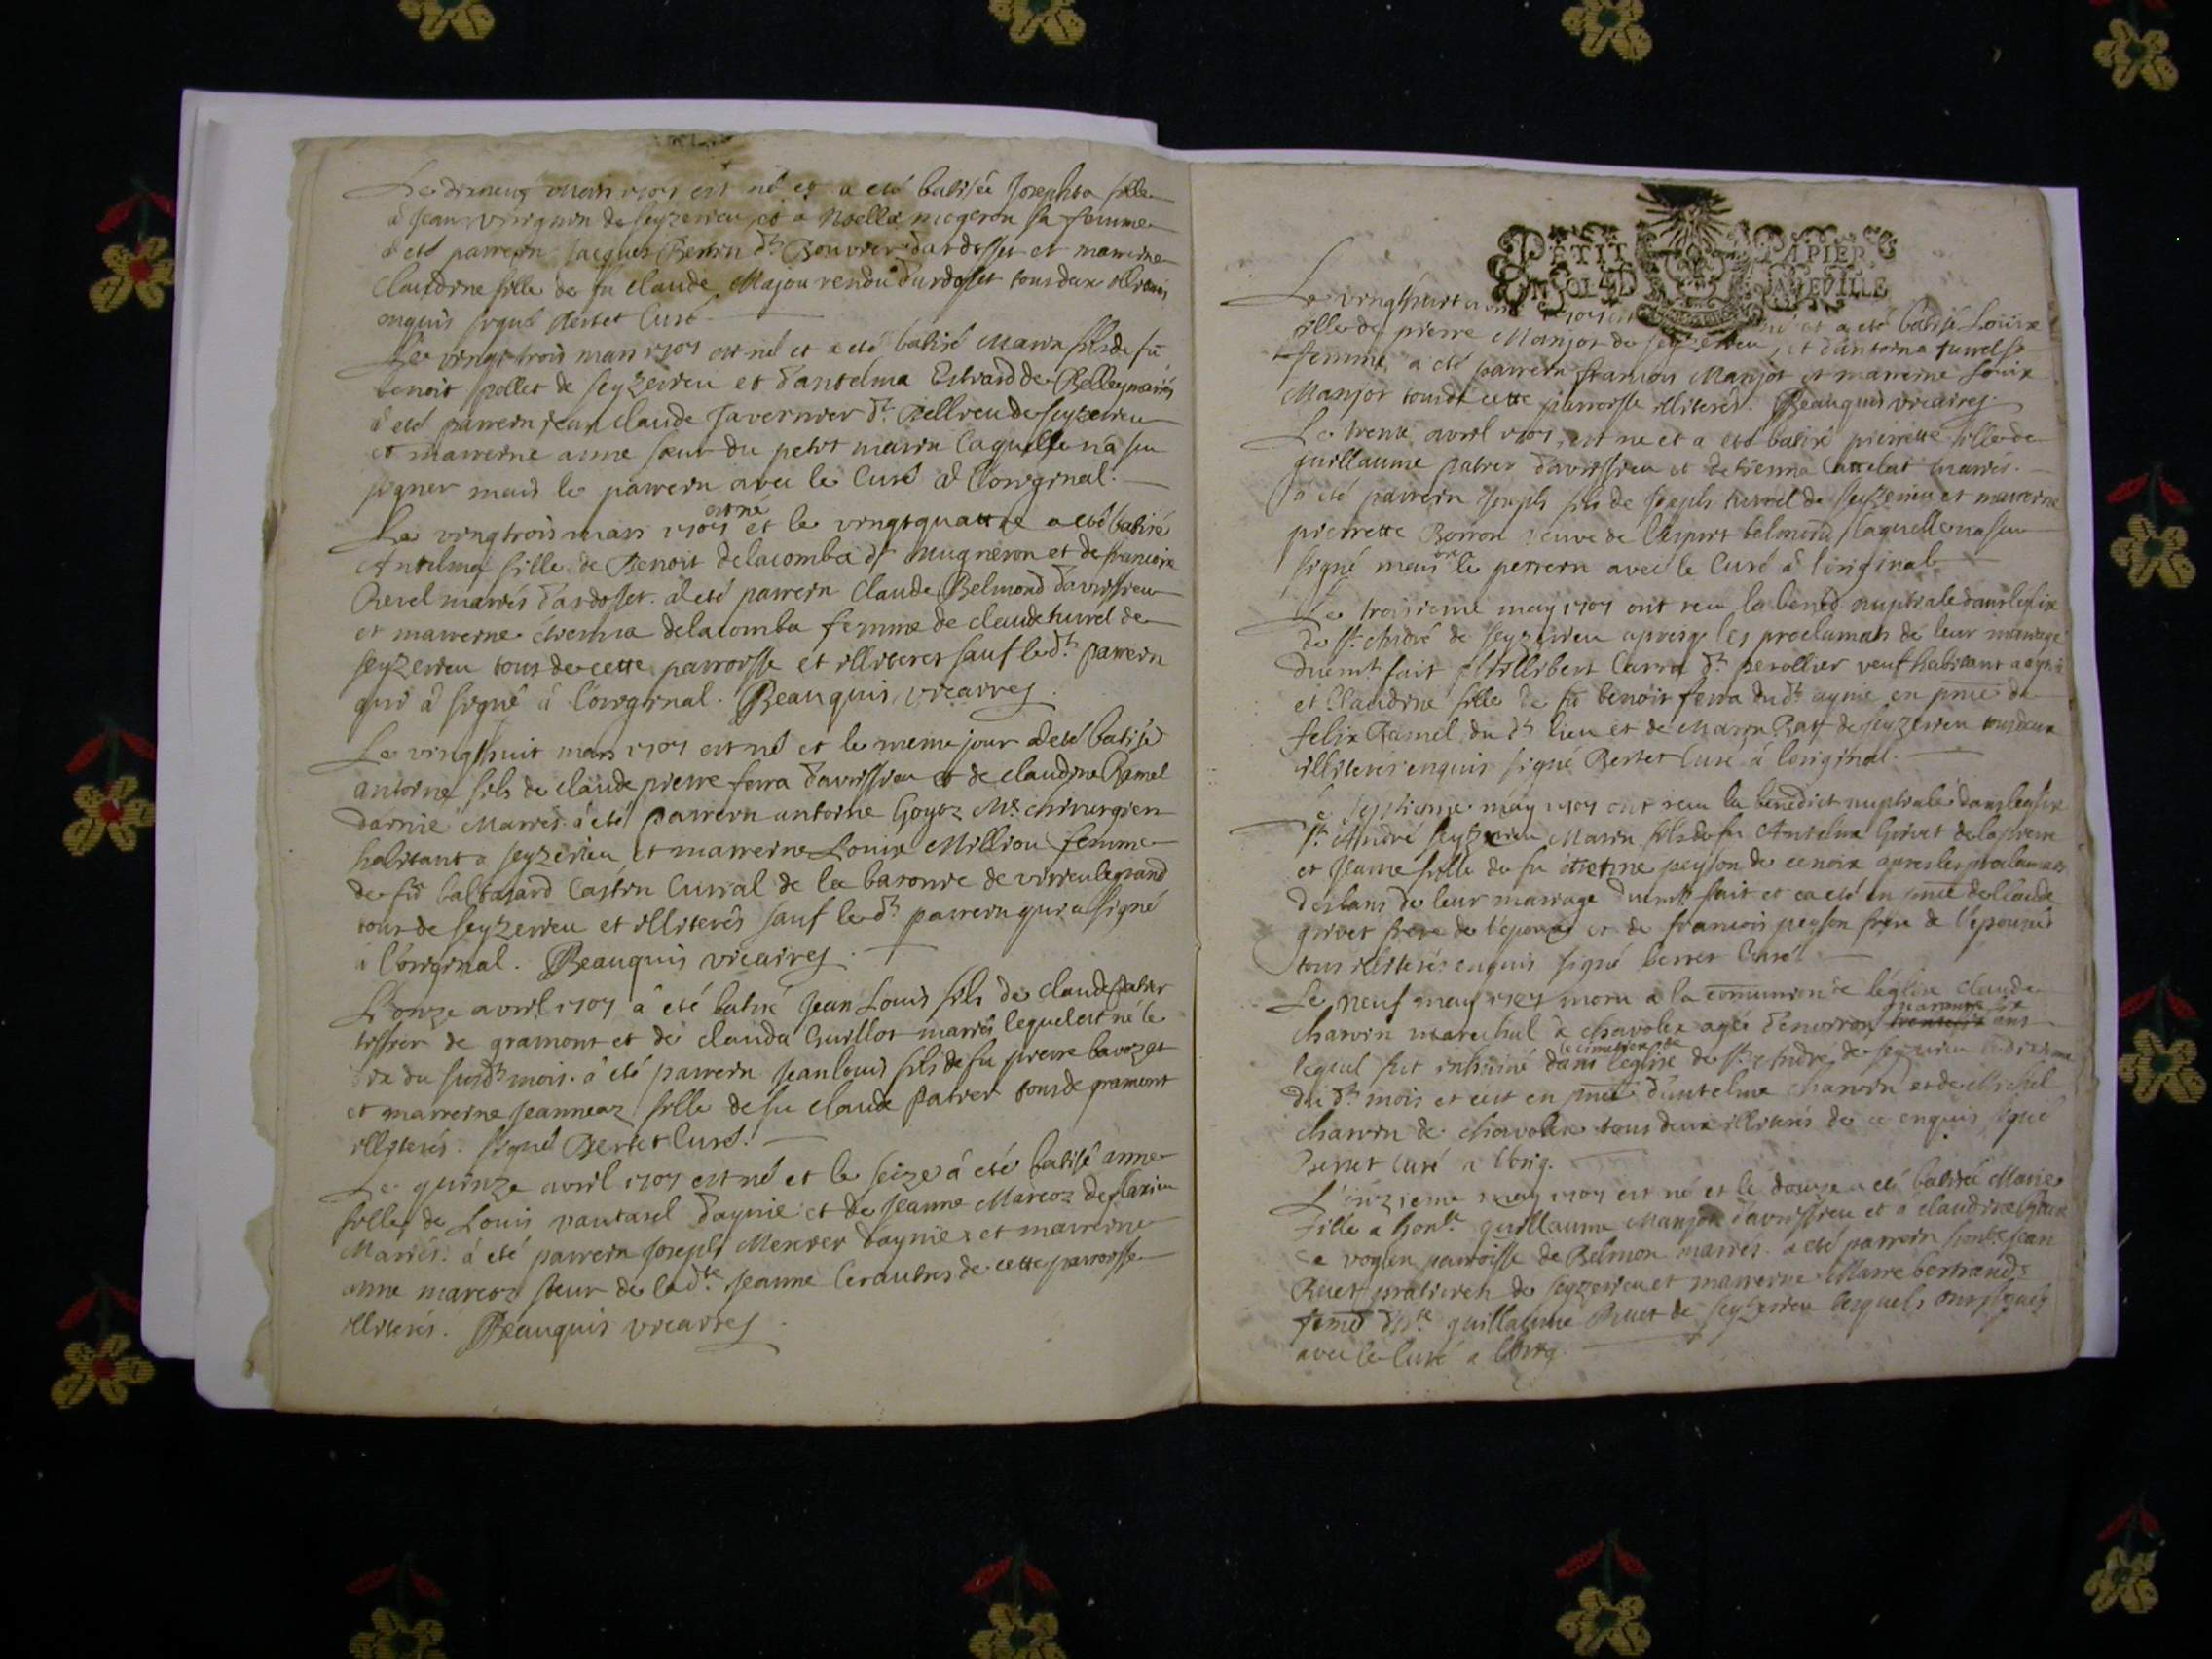 Le dixneuf mars 1707 est né et a eté batisée Josephta fille
à Jean Vuignin de Seyzerieu, et a Noella mogeron sa femme
a eté parrein Jacques Berrin dt Bouvier d'ardosset et marreine
Claudine fille de fu Claude Majou rendu d'ardosset tous deux illiterés
enquis signé Bertet Curé
Le vingt trois mars 1707 est né et a eté batisé Marin fils de fû
benoit pollet de Seyzerieu et d'antelma Estraid de Belley mariés
a eté parrein jean Claude Javernier dt Bellieu de Seyzerieu
et marreine anne sœur du petit marin laquelle n'a sçu
signer mais le parrein avec le Curé à l'original.
est né
Le vingtrois mars 1707 et le vingtquattre a eté batisé
Antelma fille de Benoit delacomba dt mugneron et de francoise
Revel mariés d'ardosset. a eté parrein Claude Belmond d'avrissieu
et marreine étienna delacomba femme de claude turrel de
Seyzerieu tous de cette parroisse et illiteres sauf le dt parrein
qui à signé à l'original. Beauquis vicaires
Le vingthuit mars 1707 est né et le meme jour a eté batisé
antoine fils de claude pierre ferra d'avrissieu et de claudine Ramel
d'arnie Mariés. a eté parrein antoine Goyoz Me chirurgien
habitant a Seyzerieu et marreine Louise Milliou femme
de fû baltasard Castin Curial de la baronie de virieulegrand
tous de Seyzerieu et illiterés sauf le dt parrein qui a signé
à l'original. Beauquis vicaires.
L'onze avril 1707 à eté batisé Jean Louis fils de claude patier
tissier de gramont et de clauda Guillot mariés lequel est né le
dix du susdt mois. a eté parrein Jean louis fils de fu pierre bavozet
et marreine Jeanneaz fille de fu claude Patier tous de gramont
illiterés. signé Bertet Curé.
Le quinze avril 1707 est né et le seize à eté batisé anne
fille de Louis vautarel d'aynie et de Jeanne Marcoz de flaxieu
Mariés. à eté parrein Joseph Mercier d'aynie et marreine
anne marcoz sœur de ladte Jeanne les autres de cette parroisse
illiterés. Beauquis vicaires.
PETIT PAPIER
UN SOL 4 D LA FEUILLE
Le vingthuit avril 1707 est né et a eté batisé Louise
fille de pierre Manjot de Seyzerieu, et d'antoina turrel sa
femme a eté parrein francois Manjot et marreine Louise
Manjot tous de cette parroisse illiterés. Beauquis vicaires.
Le trente avril 1707 est né et a eté batisé pierrette fille de
guillaume patier d'avrissieu et detienna Cattelat mariés.
à eté parrein Joseph fils de Joseph turrel de Seyzerieu et marreine
pierrette Borron veuve de l'esprit belmond laquelle na sçu
signé mais le perrein avec le Curé à l'original
Le troisieme may 1707 ont recu la bened. nuptiale dans leglise
de st André de Seyzerieu apres les proclamats de leur mariage
duemt fait phillibert Carra dt perollier veuf habitant a aynie
et Claudine fille de fû benoit ferra du dt aynie en pnce de
felix Ramel du dt lieu et de Marin Rat de Seyzerieu tous deux
illiterés enquis signé Bertet Curé à l'original.
Le septieme may 1707 ont recu la benedict nuptiale dans leglise
St André Seyzerieu Marin fils de fu Antelme Grivet
et Jeanne fille de fu étienne peyson de cenoix apres les proclamats
des bans de leur mariage duemt fait et ca eté en pnce de Claude
grivet frere de l'epoux et de francois peyson frere de l'epouse
tous illiterés enquis signé bertet Curé
Le neuf may 1707 moru a la communion de l'église claude
quarante six
charvin marechal à chavolex agée d'environ ans
le cimetiere de
lequel fut inhumé dans l'eglise de St André de Seyzerieu le dixieme
du dt mois et cest en pnce d'antelme charvin et de Michel
charvin de chavolex tous deux illiterés de ce enquis signé
Bertet Curé a l'orig.
L'onzieme may 1707 est né et le douze a eté batisée Marie
fille a honte guillaume Manjot d'avrissieu et à claudine
de voglen parroisse de Belmon mariés. a eté parrein honte Jean
Ruet praticien de Seyzerieu et marreine Marie bertrand
feme d'hte guillaume Ruet de Seyzerieu lesquels ont signés
avec le Curé a l'orig.